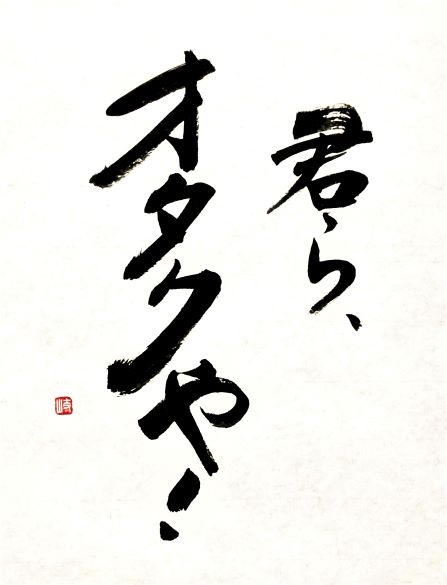 君ら、
オタクや!